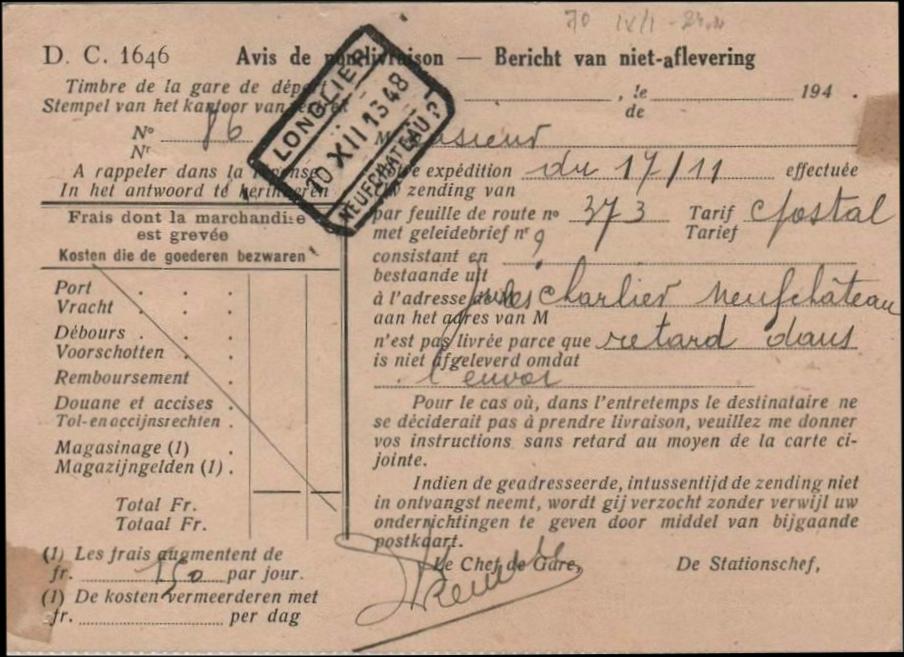 D. C. 1646
Avis de non-livraison — Bericht van niet-aflevering
Timbre de la gare de départ
Stempel van het kantoor van vertrek
LONGLIER
10 XII 13 48
NEUFCHATEAU
, le 194 .
de
No 86
Nr
A rappeler dans la réponse
In het antwoord te herinneren
Frais dont la marchandise
est grevée
Kosten die de goederen bezwaren
Port . . .
Vracht . . .
Débours . . .
Voorschotten . .
Remboursement .
Douane et accises .
Tol-en accijnsrechten .
Magasinage (1) .
Magazijngelden (1) .
Total Fr.
Totaal Fr.
(1) Les frais augmentent de
fr. 1,50 par jour.
(1) De kosten vermeerderen met
fr. per dag
Monsieur
Votre expédition du 17/11 effectuée
zending van
par feuille de route no 373 Tarif Postal
met geleidebrief nr Tarief
consistant en
bestaande uit
à l'adresse de M Jules Charlier Neufchâteau
aan het adres van M
n'est pas livrée parce que retard dans
is niet afgeleverd omdat
l'envoi
Pour le cas où, dans l'entretemps le destinataire ne
se déciderait pas à prendre livraison, veuillez me donner
vos instructions sans retard au moyen de la carte ci-
jointe.
Indien de geadresseerde, intussentijd de zending niet
in ontvangst neemt, wordt gij verzocht zonder verwijl uw
onderrichtingen te geven door middel van bijgaande
postkaart.
Le Chef de Gare, De Stationschef,